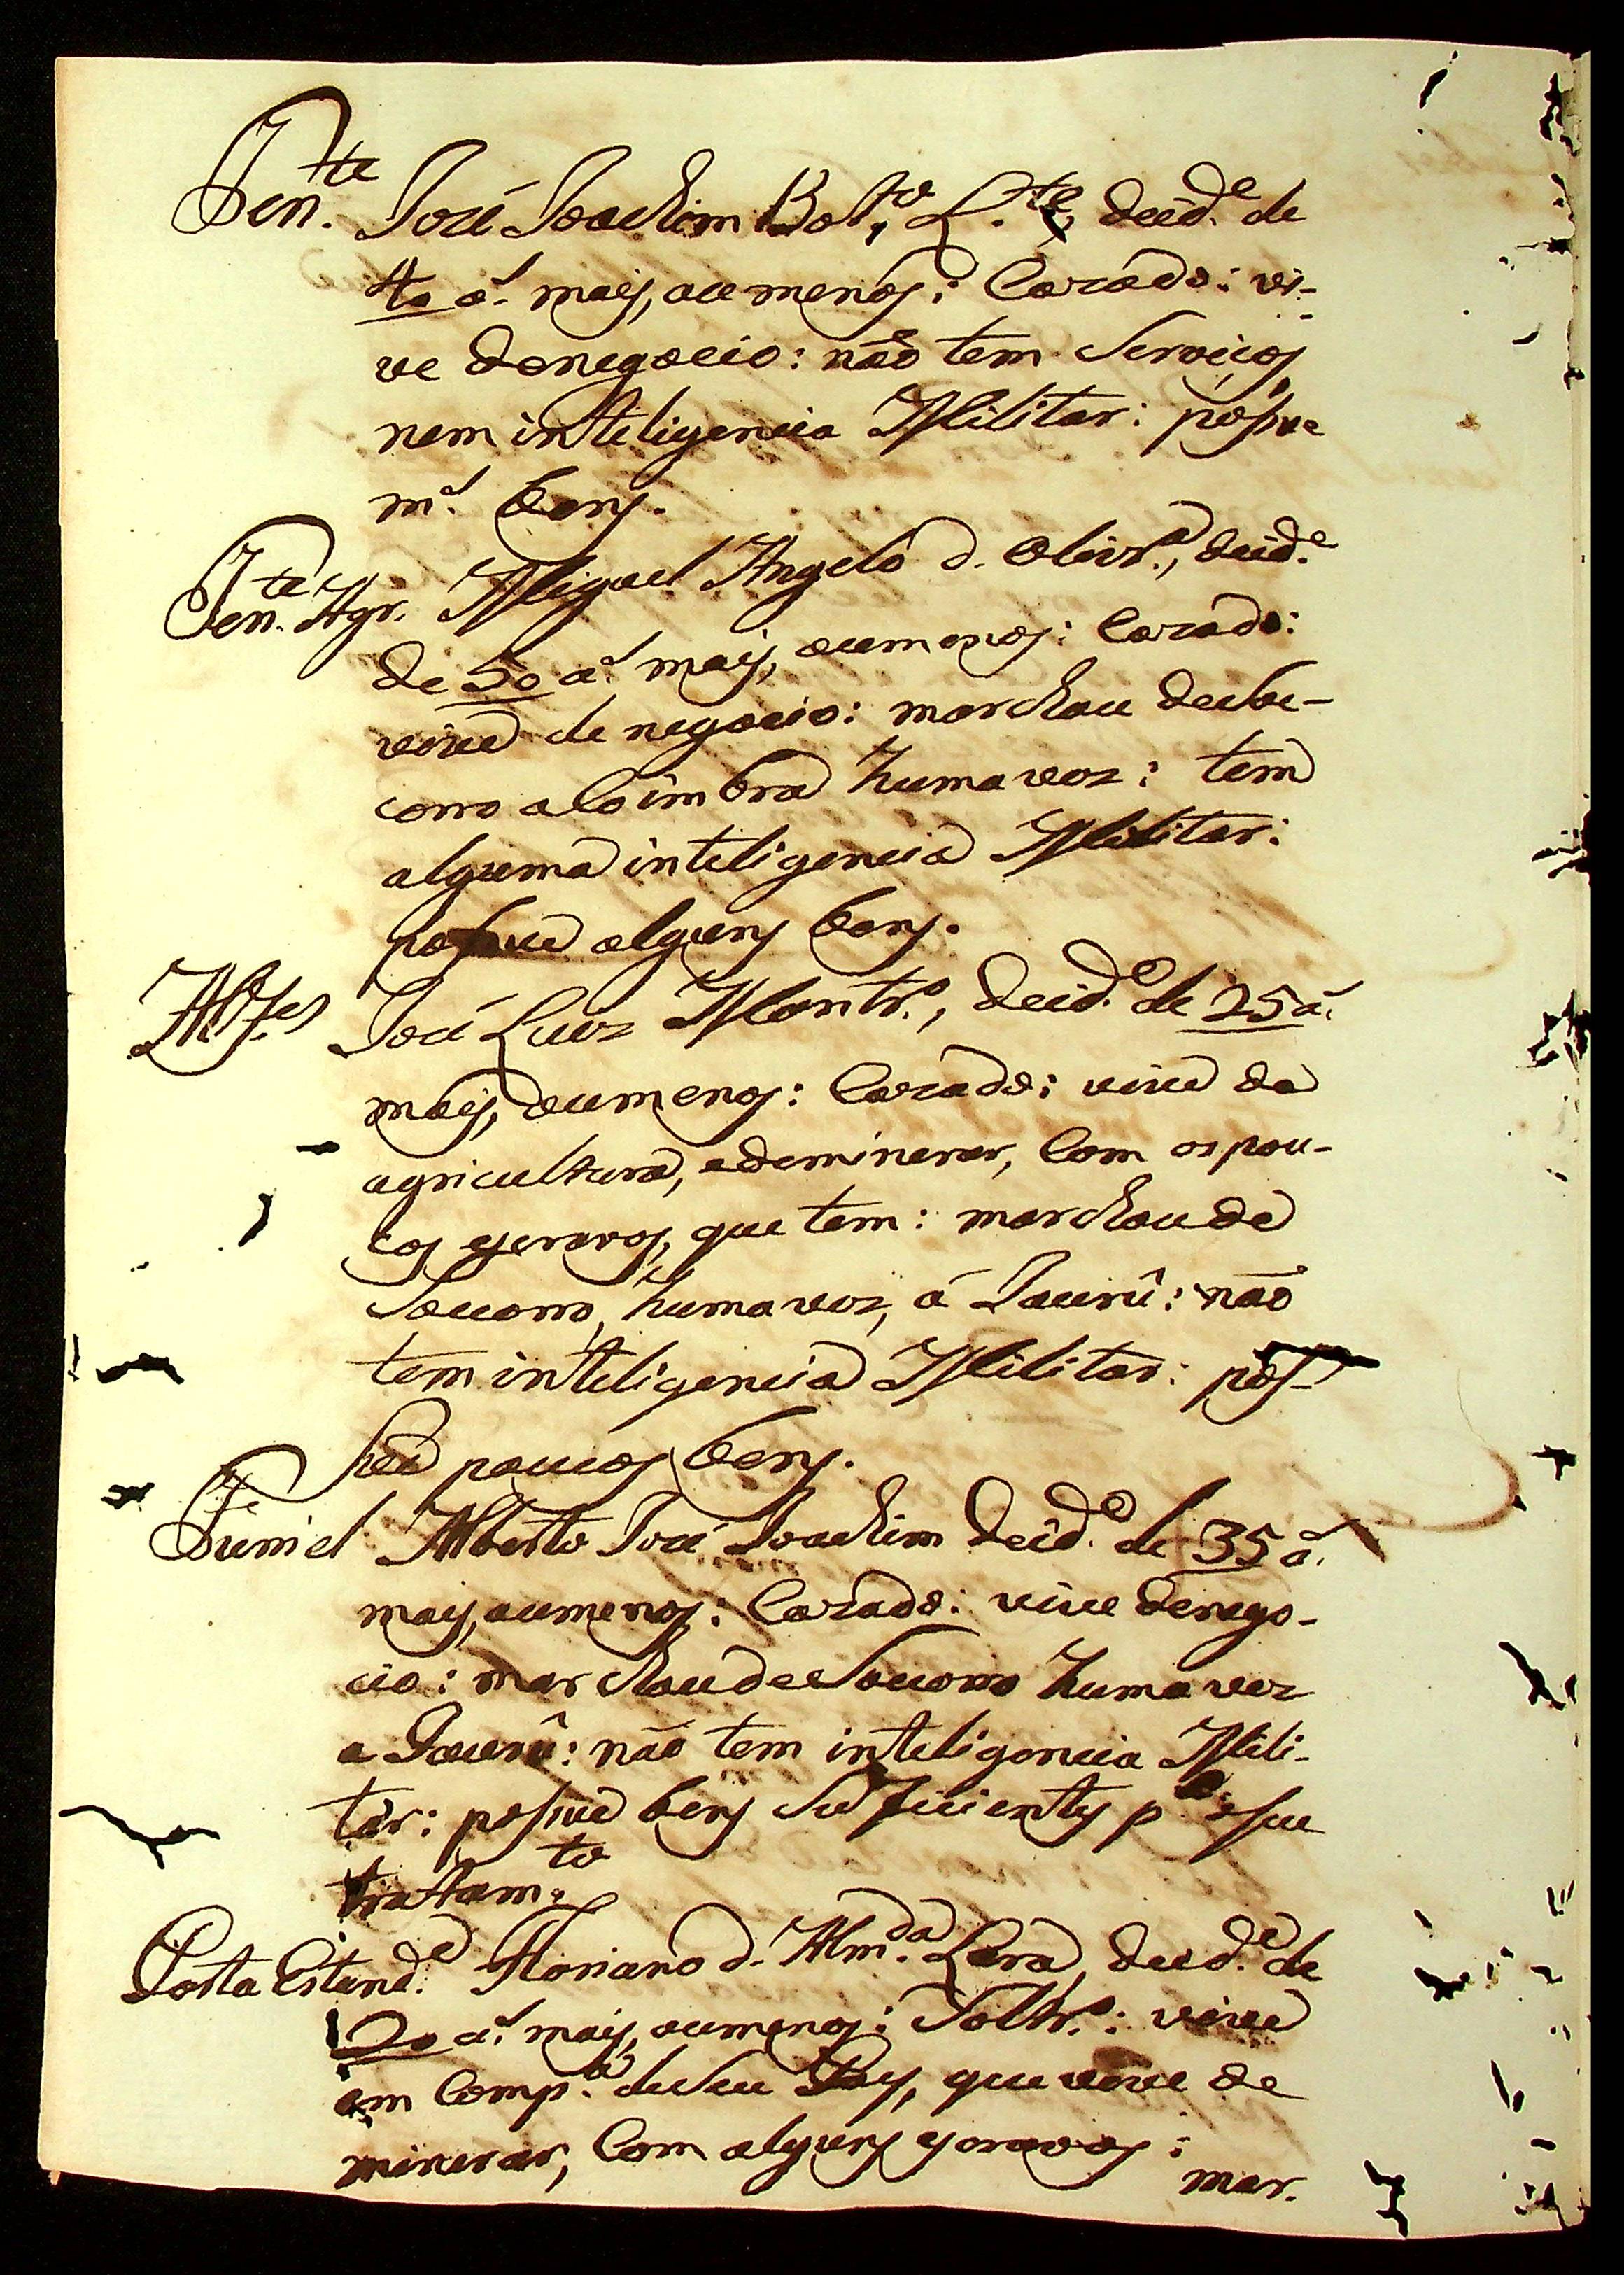 Ten.te José Joachim Bot.o L.te, de id.e de
40 a.s mais, ou menos: Cazado: vi-
ve de negocio: não tem Serviços
nem inteligencia Militar: possue
m.s bens.
Ten.te Agr. Miguel Angelo d. Olivr.a, de id.e
de 50 a.s mais, ou menos: Cazado:
vive de negocio: marchou de So-
corro a Coimbra huma vez: tem
alguma inteligencia Militar:
possue alguns bens.
Alf.es José Luiz Montr.o, de id.e de 25 a.s
mais, ou menos: Cazado: vive da
agricultura, e de minerar, Com os pou-
cos escravos, que tem: marchou de
Socorro, huma vez, á Jaurú: não
tem inteligencia Militar: pos-
sue poucos bens.
Furriel Alberto José Joachim de id.e de 35 a.s
mais, ou menos: Cazado: vive de nego-
cio: marchou de Socorro huma vez
a Jaurú: não tem inteligencia Mili-
tar: possue bens Suficientes p.a o seu
tratam.to
Porta Estand.e Floriano d. Alm.da Lara, de id.e de
20 a.s mais, ou menos: Soltr.o: vive
em Comp.a de Seu Pay, que vive de
minerar, Com alguns escravos:
mar.